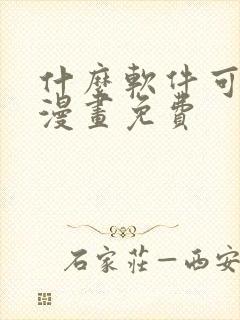 什麼軟件可
漫畫免費
石家莊—西安